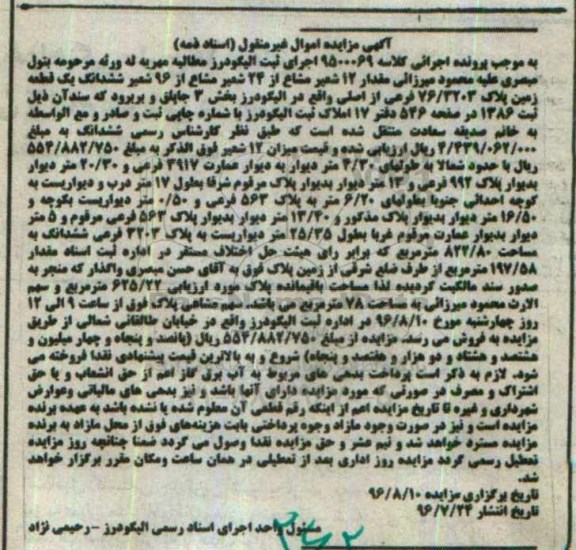 آگهی مزایده اموال غیرمنقول (اسناد ذمه)
به موجب پرونده اجرائی کلاسه ۹۵۰۰۰۶۹ اجرای ثبت الیگودرز مطالبه مهریه له ورثه مرحومه بتول
مبصری علیه محمود میرزائی مقدار ۱۲ شعیر مشاع از ۲۴ شعیر مشاع از ۹۶ شعیر ششدانگ یک قطعه
زمین پلاک ۷۶/۳۲۰۳ فرعی از اصلی واقع در الیگودرز بخش ۳ جاپلق و بربرود که سندآن ذیل
ثبت ۱۳۸۶ در صفحه ۵۴۶ دفتر ۱۷ املاک ثبت الیگودرز با شماره چاپی ثبت و صادر و مع الواسطه
به خانم صدیقه سعادت منتقل شده است که طبق نظر کارشناس رسمی ششدانگ به مبلغ
۴/۴۳۹/۰۶۲/۰۰۰ ریال ارزیابی شده و قیمت میزان ۱۲ شعیر فوق الذکر به مبلغ ۵۵۴/۸۸۲/۷۵۰
ریال با حدود شمالا به طولهای ۴/۳۰ متر دیوار به دیوار عمارت ۳۹۱۷ فرعی و ۲۰/۳۰ متر دیوار
بدیوار پلاک ۹۹۲ فرعی و ۱۳ متر دیوار بدیوار پلاک مرقوم شرقا بطول ۱۷ متر درب و دیواریست به
کوچه احداثی جنوبا بطولهای ۶/۲۰ متر به پلاک ۵۶۳ فرعی و ۰/۵۰ متر دیواریست بکوچه و
۱۶/۵۰ متر دیوار بدیوار پلاک مذکور و ۱۳/۴۰ متر دیوار بدیوار پلاک ۵۶۳ فرعی مرقوم و ۵ متر
دیوار بدیوار عمارت مرقوم غربا بطول ۲۵/۳۵ متر دیواریست به پلاک ۳۲۰۳ فرعی ششدانگ به
مساحت ۸۲۲/۸۰ مترمربع که برابر رای هیئت حل اختلاف مستقر در اداره ثبت اسناد مقدار
۱۹۷/۵۸ مترمربع از طرف ضلع شرقی از زمین پلاک فوق به آقای حسن مبصری واگذار که منجر به
صدور سند مالکیت گردیده لذا مساحت باقیمانده پلاک مورد ارزیابی ۶۲۵/۲۲ مترمربع و سهم
الارث محمود میرزائی به مساحت ۷۸ مترمربع می باشد. سهم مشاعی پلاک فوق از ساعت ۹ الی ۱۲
روز چهارشنبه مورخ ۹۶/۸/۱۰ در اداره ثبت الیگودرز واقع در خیابان طالقانی شمالی از طریق
مزایده به فروش می رسد. مزایده از مبلغ ۵۵۴/۸۸۲/۷۵۰ ریال (پانصد و پنجاه و چهار میلیون و
هشتصد و هشتاد و دو هزار و هفتصد و پنجاه) شروع و به بالاترین قیمت پیشنهادی نقدا فروخته می
شود. لازم به ذکر است پرداخت بدهی های مربوط به آب برق گاز اعم از حق انشعاب و یا حق
اشتراک و مصرف در صورتی که مورد مزایده دارای آنها باشد و نیز بدهی های مالیاتی وعوارض
شهرداری و غیره تا تاریخ مزایده اعم از اینکه رقم قطعی آن معلوم شده یا نشده باشد به عهده برنده
مزایده است و نیز در صورت وجود مازاد وجوه پرداختی بابت هزینه‌های فوق از محل مازاد به برنده
مزایده مسترد خواهد شد و نیم عشر و حق مزایده نقدا وصول می گردد ضمنا چنانچه روز مزایده
تعطیل رسمی گردد مزایده روز اداری بعد از تعطیلی در همان ساعت ومکان مقرر برگزار خواهد
شد.
تاریخ برگزاری مزایده ۹۶/۸/۱۰
تاریخ انتشار ۹۶/۷/۲۴
مسئول واحد اجرای اسناد رسمی الیگودرز -رحیمی نژاد